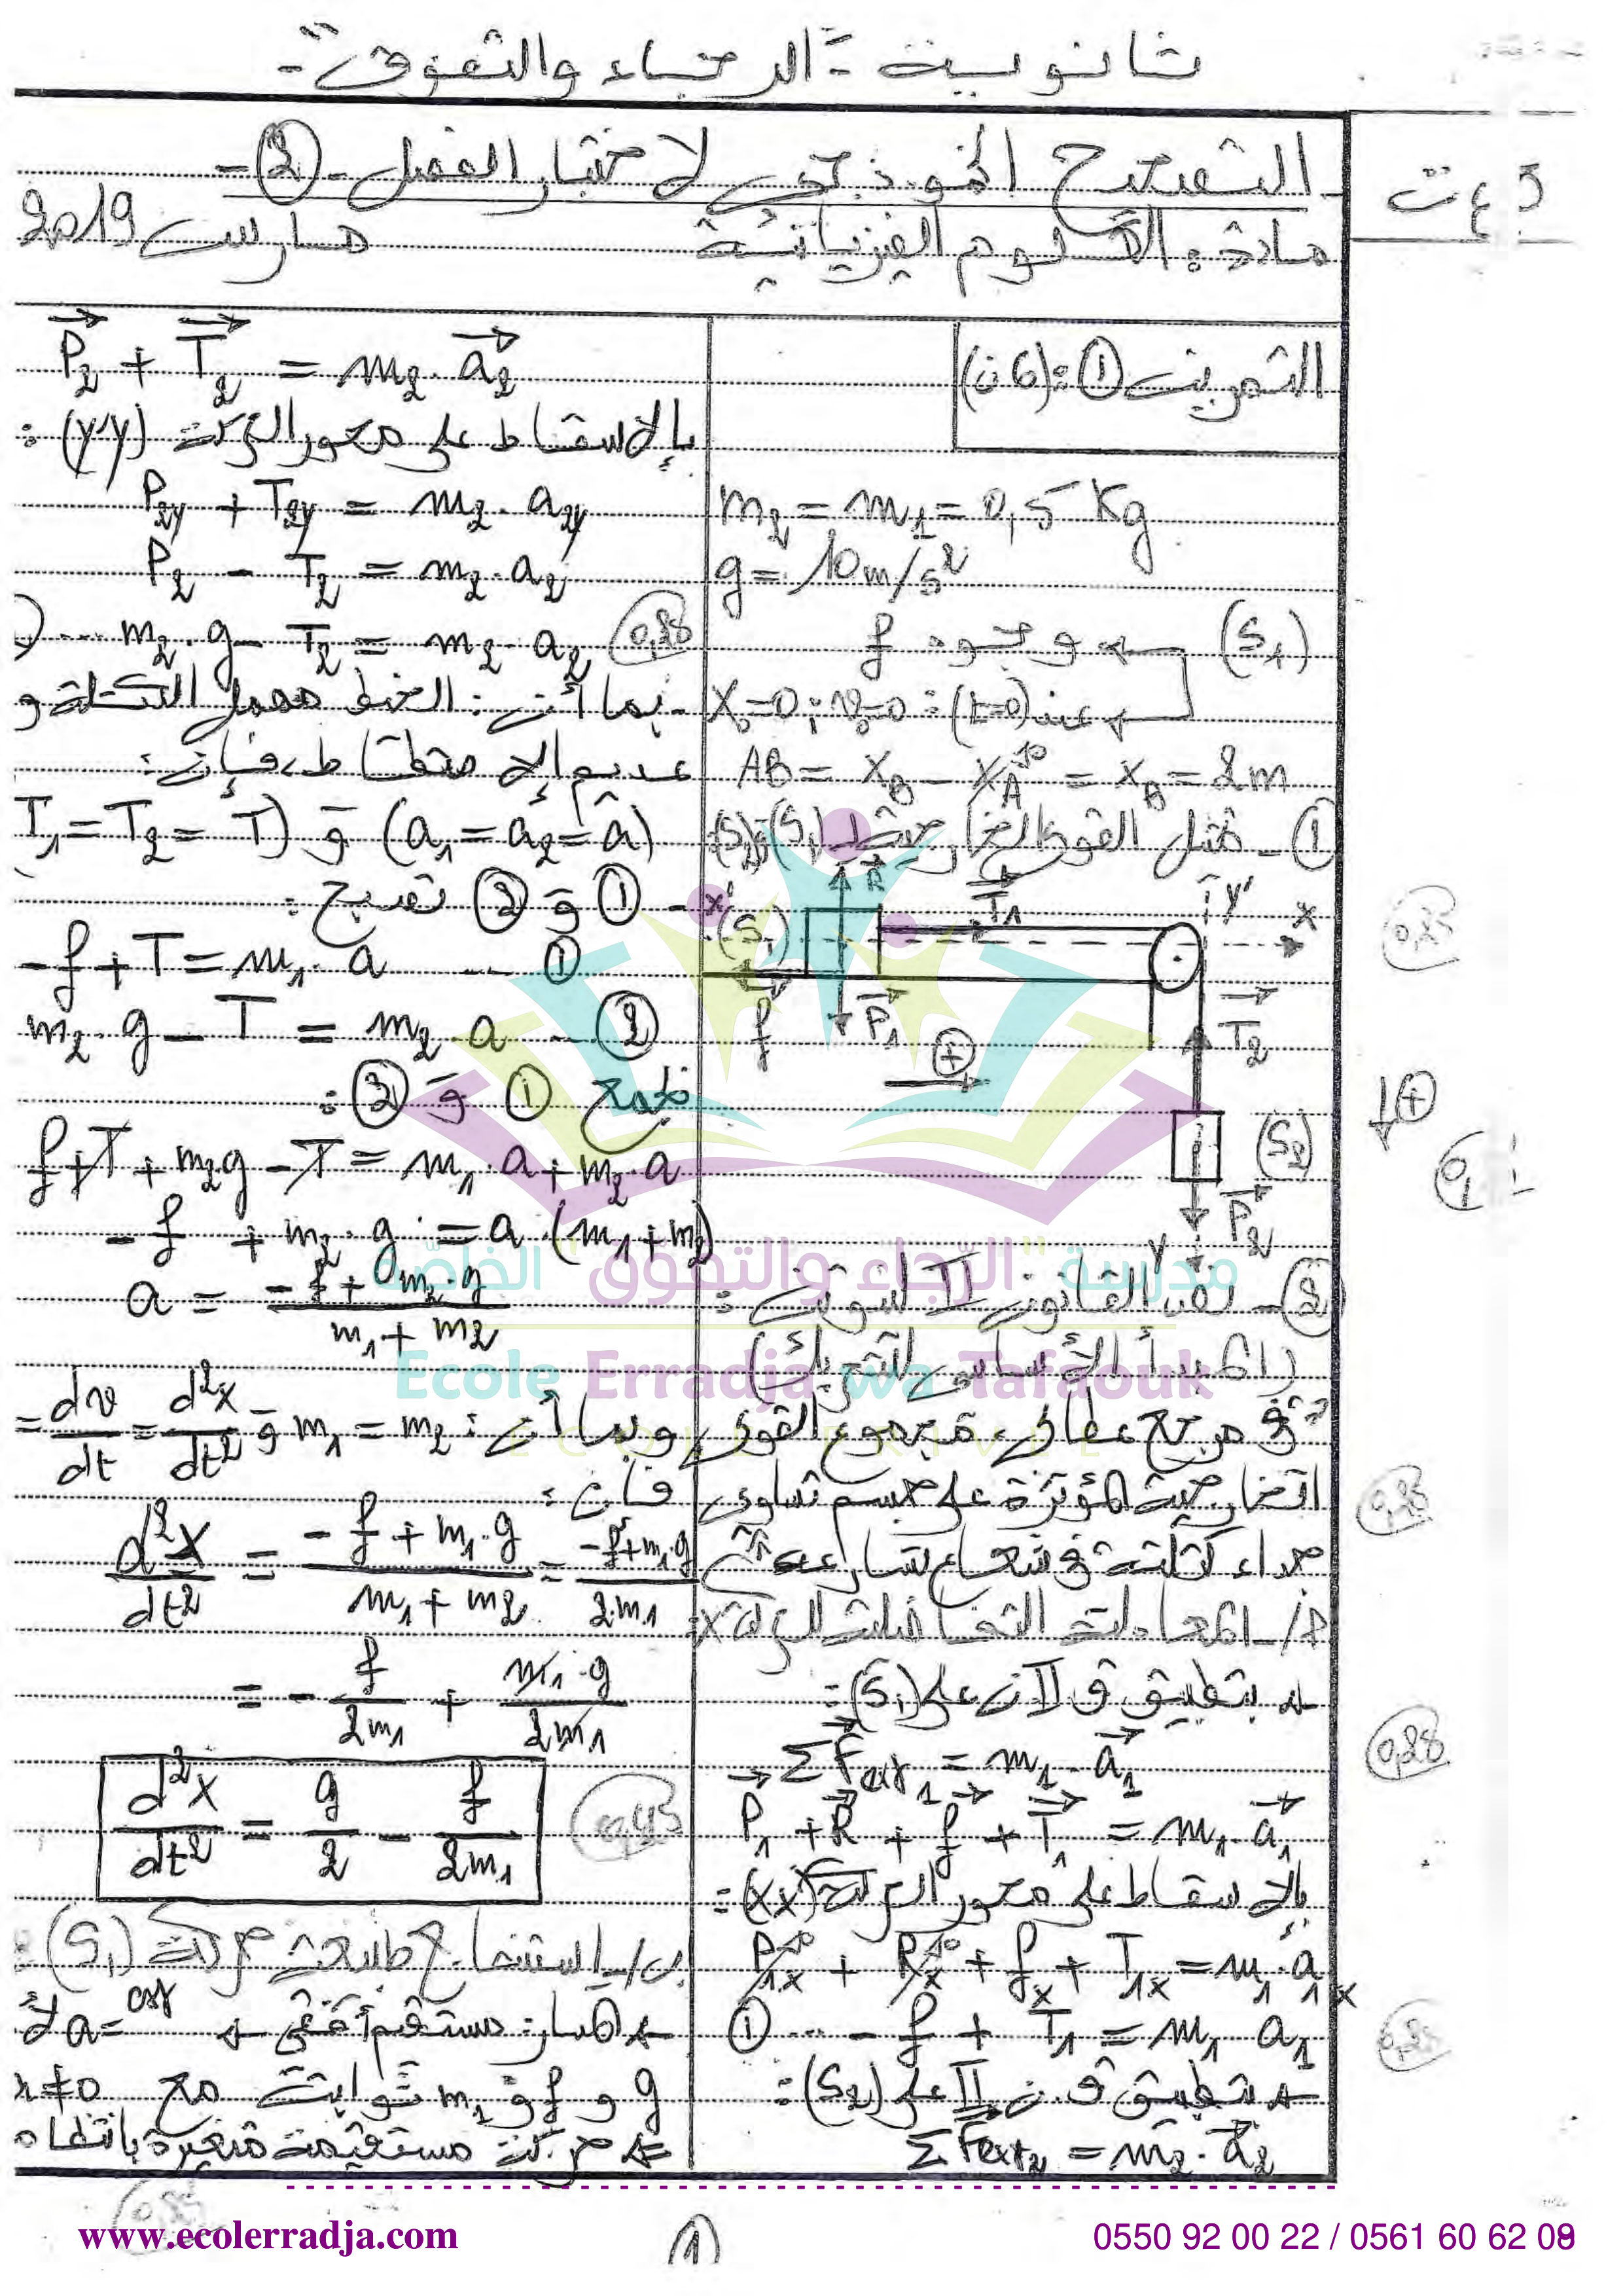 ثانوية - الرجاء والتفوق -
3 ع ت
التصحيح النموذجي لاختبار الفصل - ② -
مادة: العلوم الفيزيائية
مارس 2019
التمرين ①: (6ن)
m₂ = m₁ = 0,5 Kg
g = 10 m/s²
(S₁) وجود f
عند (t=0): v₀=0 ; x₀=0
AB = x_B − x_A = x_B = 2m
① - تمثيل القوى الخارجية لـ (S₁) و (S₂):
x' (S₁) R⃗ T⃗₁ y' x
f⃗ P⃗₁ ⊕ T⃗₂
⊕
(S₂)
P⃗₂
y
② - نص القانون II لنيوتن:
(المبدأ الأساسي للتحريك)
في مرجع عطالي، مجموع القوى
الخارجية المؤثرة على جسم تساوي
جداء كتلته في شعاع تسارعه
أ/ - المعادلة التفاضلية للحركة x:
بتطبيق ق II ن على (S₁):
ΣF⃗ext₁ = m₁ . a⃗₁
P⃗₁ + R⃗ + f⃗ + T⃗₁ = m₁ . a⃗₁
بالإسقاط على محور الحركة (x'x):
P₁ₓ + Rₓ + fₓ + T₁ₓ = m₁ . a₁ₓ
① ... − f + T₁ = m₁ a₁
بتطبيق ق. ن II على (S₂):
ΣF⃗ext₂ = m₂ . a⃗₂
P⃗₂ + T⃗₂ = m₂ . a⃗₂
بالإسقاط على محور الحركة (y'y):
P₂y + T₂y = m₂ . a₂y
P₂ − T₂ = m₂ . a₂
... m₂ . g − T₂ = m₂ . a₂
- بما أن: الخيط مهمل الكتلة و
عديم الإمتطاط، فإن:
T₁ = T₂ = T) و (a₁ = a₂ = a)
- ① و ② تصبح:
− f + T = m₁ . a ... ①
m₂ . g − T = m₂ . a ... ②
بجمع ① و ②:
f + T + m₂g − T = m₁ . a + m₂ . a
− f + m₂ . g = a . (m₁ + m₂)
a = (− f + m₂ . g) / (m₁ + m₂)
وبما أن: m₁ = m₂ و dv/dt = d²x/dt² =
فإن:
d²x/dt² = (− f + m₁ . g) / (m₁ + m₂) = (− f + m₁ . g) / 2.m₁
= − f/2m₁ + m₁ . g/2m₁
d²x/dt² = g/2 − f/2m₁
ب/ - استنتاج طبيعة حركة (S₁):
المسار: مستقيم أفقي a = cst
g و f و m₁ ثوابت مع ≠ 0
حركة مستقيمة متغيرة بانتظام
0,25
0,25
0,25
0,25
مدرسة "الرجاء والتفوق" الخاصة
Ecole Erradja wa Tafaouk
ECOLE PRIVEE
www.ecolerradja.com
1
0550 92 00 22 / 0561 60 62 09